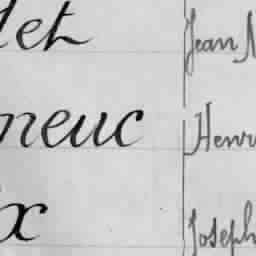 let Jean
neuc Henri
ix Joseph